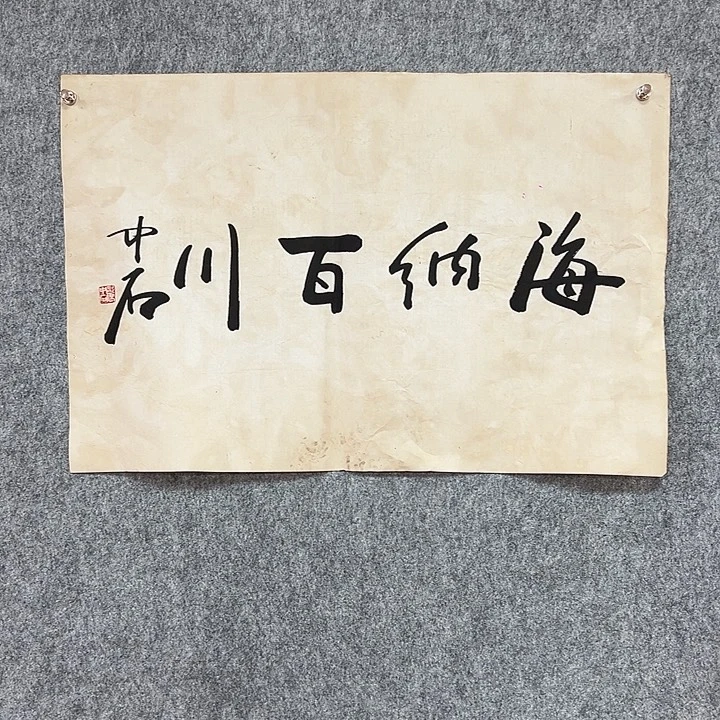 海纳百川
中石